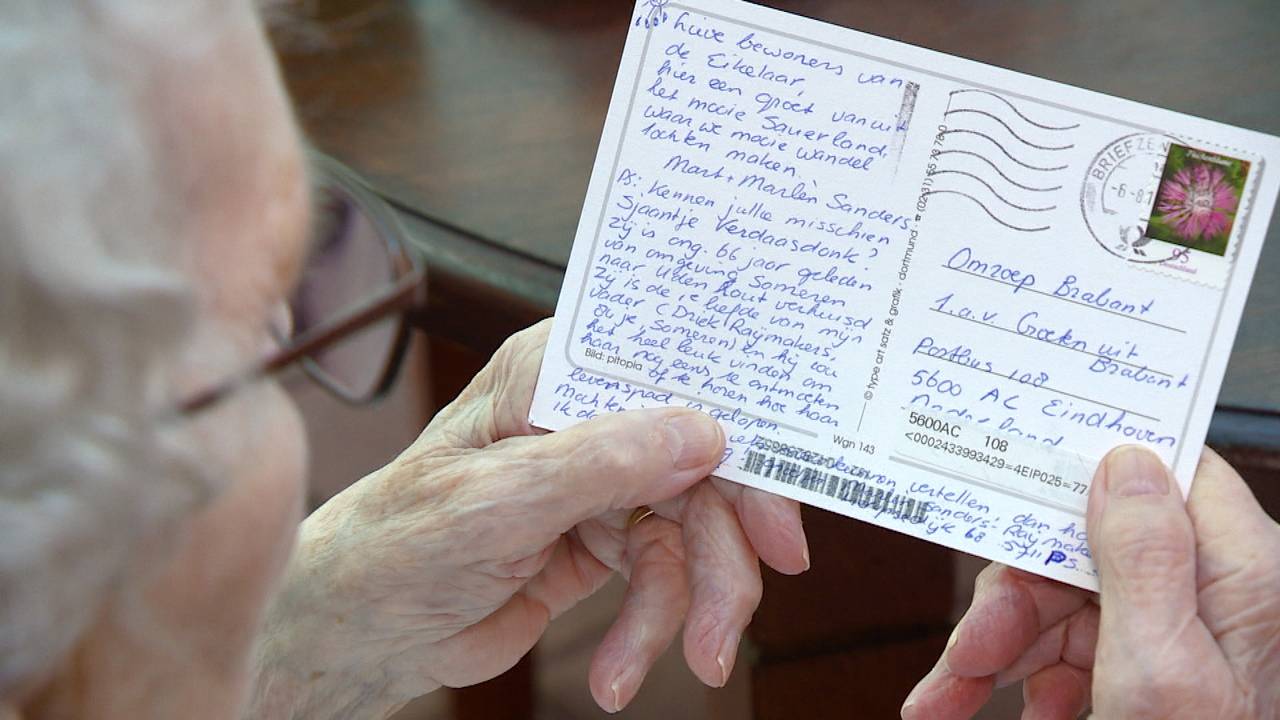 Lieve bewoners van
de Eikelaar,
hier een groet vanuit
het mooie Sauerland,
waar we mooie wandel
tochten maken.
Mart + Marlèn Sanders
PS: Kennen jullie misschien
Sjaantje Verdaasdonk?
zij is ong. 66 jaar geleden
van omgeving Someren
naar Udenhout verhuisd
zij is de 1e liefde van mijn
vader (Driek Raijmakers,
uit Someren) en hij zou
het heel leuk vinden om
haar nog eens te ontmoeten
of te horen hoe haar
levenspad is gelopen.
Mochten
Ik
vertellen, dan
Sanders-
68 5711 PS
Bild: pitopia
Wgn 143
© type art satz & grafik · dortmund · (0231)
BRIEFZEN
95
Omroep Brabant
t.a.v. Groeten uit
Brabant
Postbus 108
5600 AC Eindhoven
5600AC 108
<0002433993429=4EIP025=77